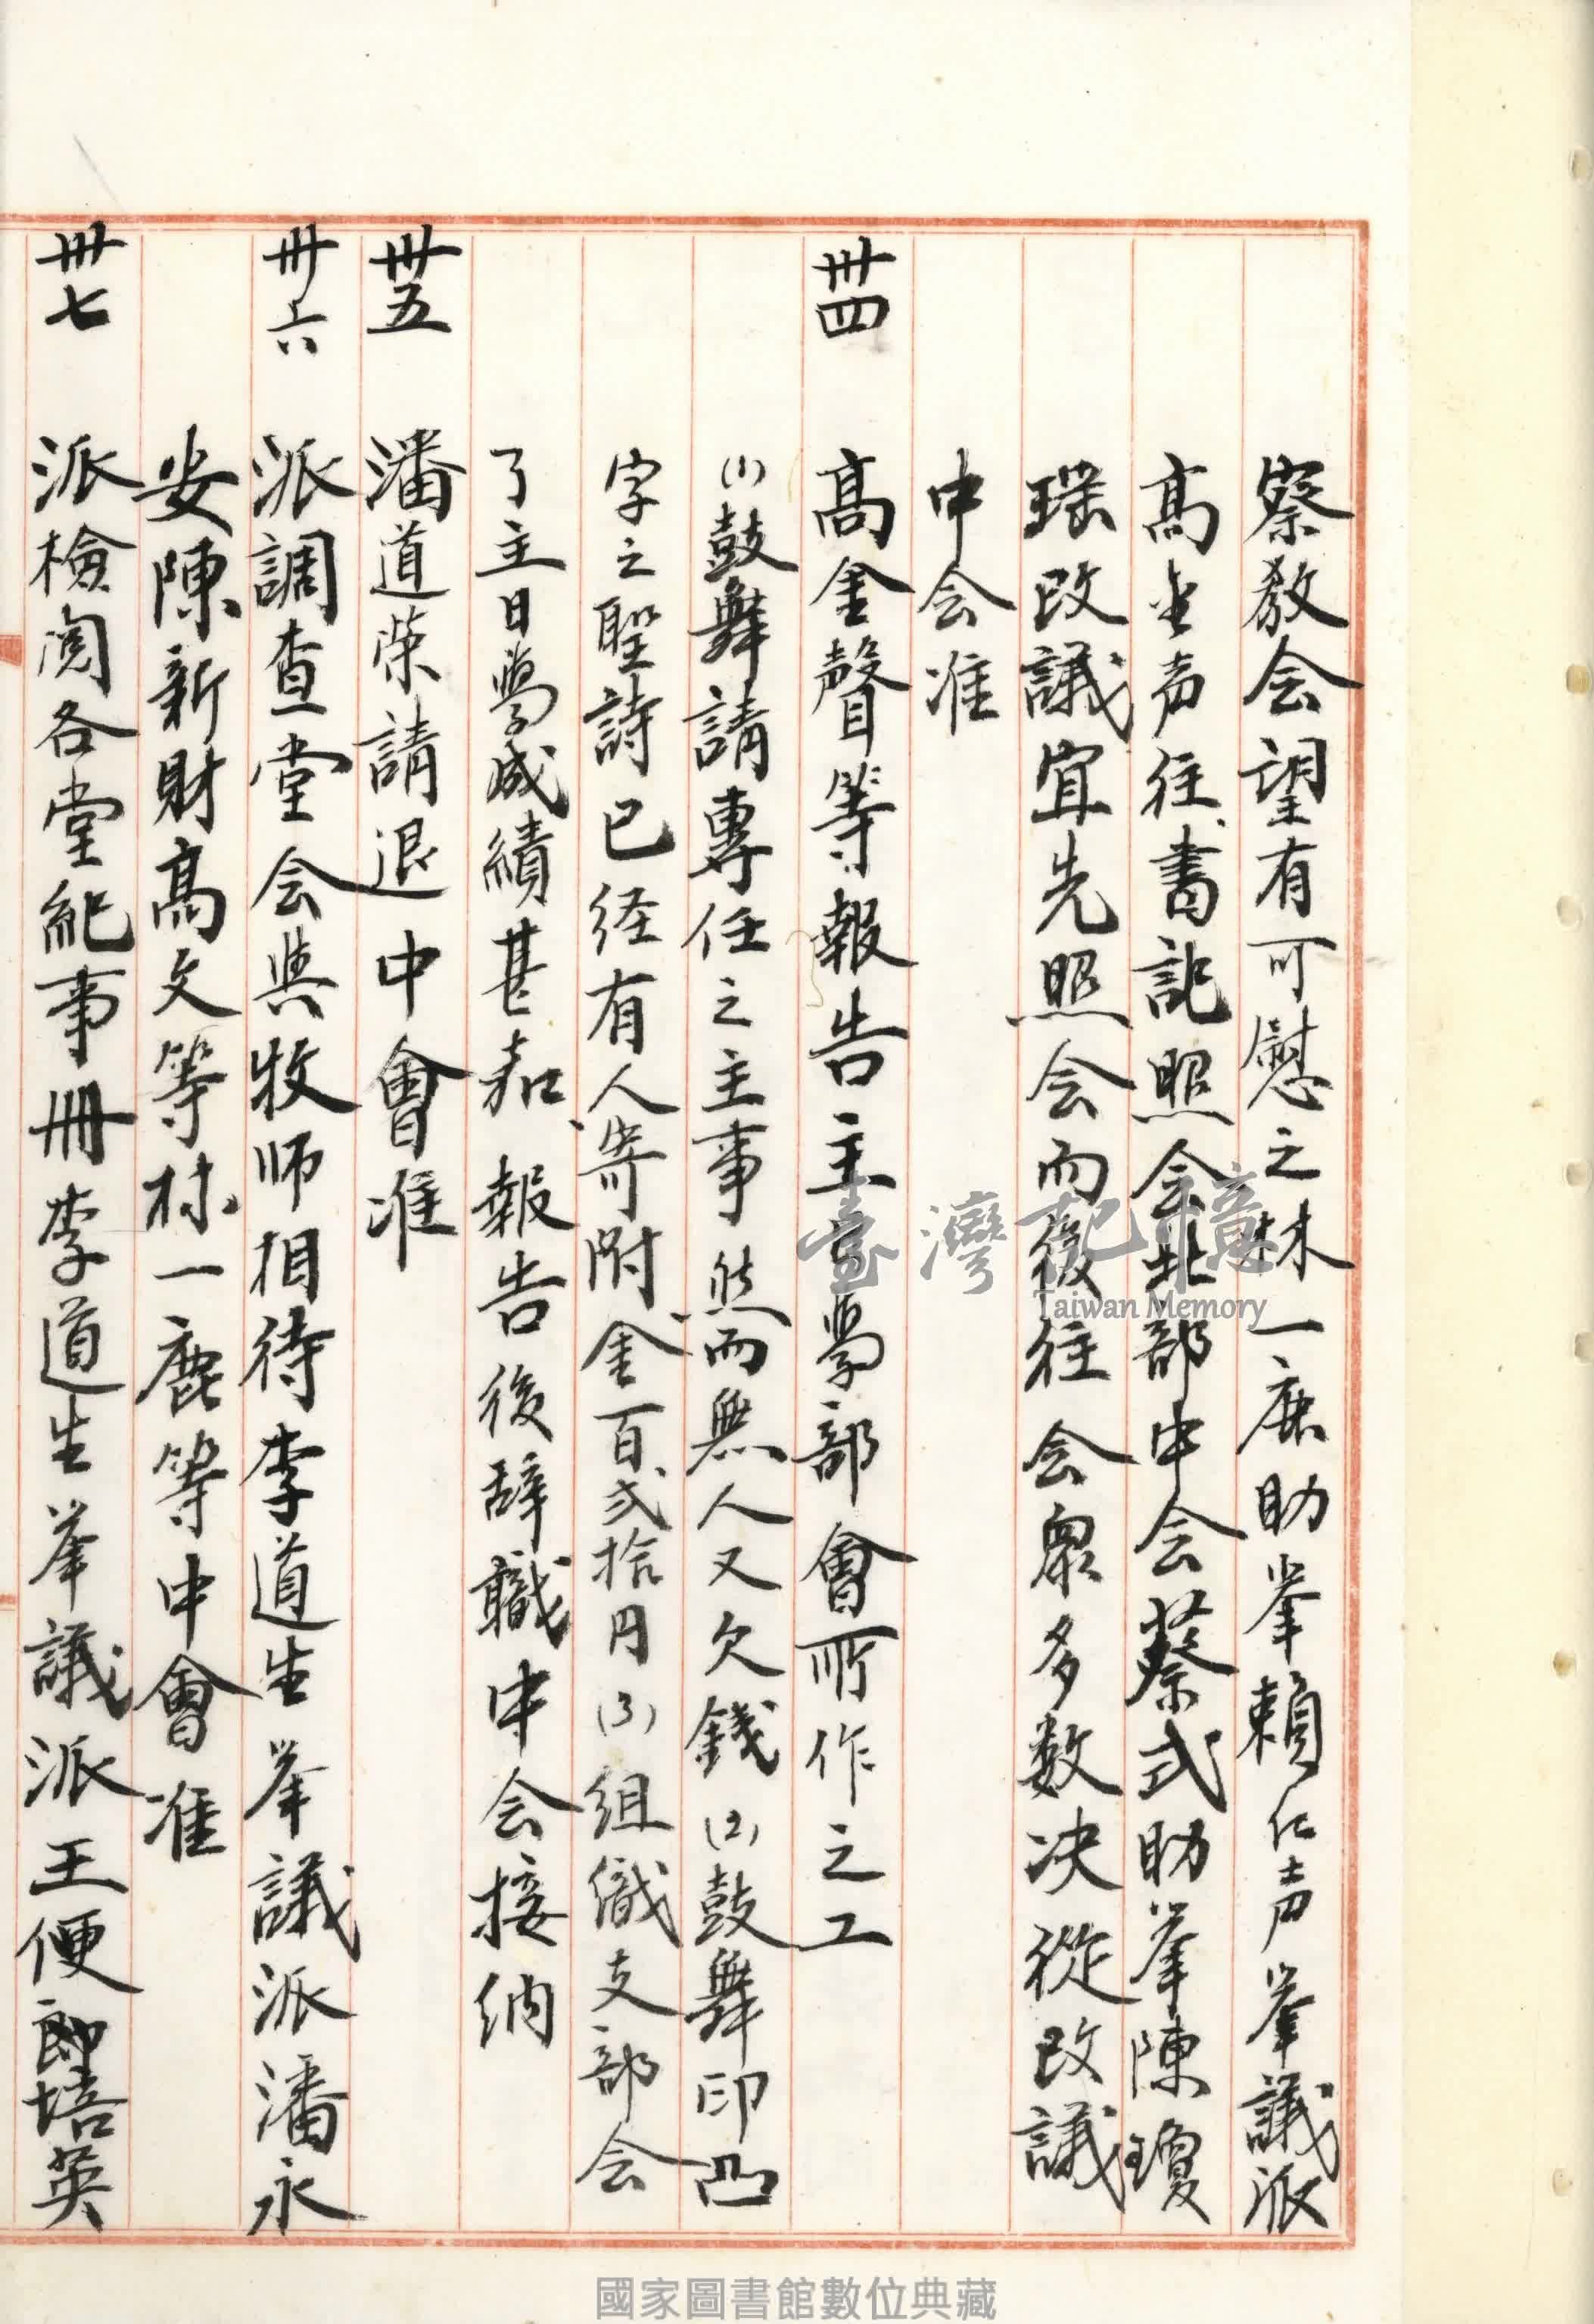 察教会望有可慰之林一鹿助举賴仁声举議派
高金声往書記照会北部中会蔡式助举陳瓊
瑶改議宜先照会而後往会衆多数决從改議
中会准
卅四 高金聲等報告主日學部會所作之工
(1)鼓舞請專任之主事然而無人又欠錢(2)鼓舞印凸
字之聖詩已経有人寄附金百弍拾円(3)組織支部会
了主日學成績甚好、報告後辞職中会接納
卅五 潘道榮請退中會准
卅六 派調查堂会與牧师相待李道生举議派潘永
安陳新財高文等林一鹿等中會准
卅七 派檢閲各堂紀事冊李道生举議派王便郎培英
臺灣記憶
Taiwan Memory
國家圖書館數位典藏